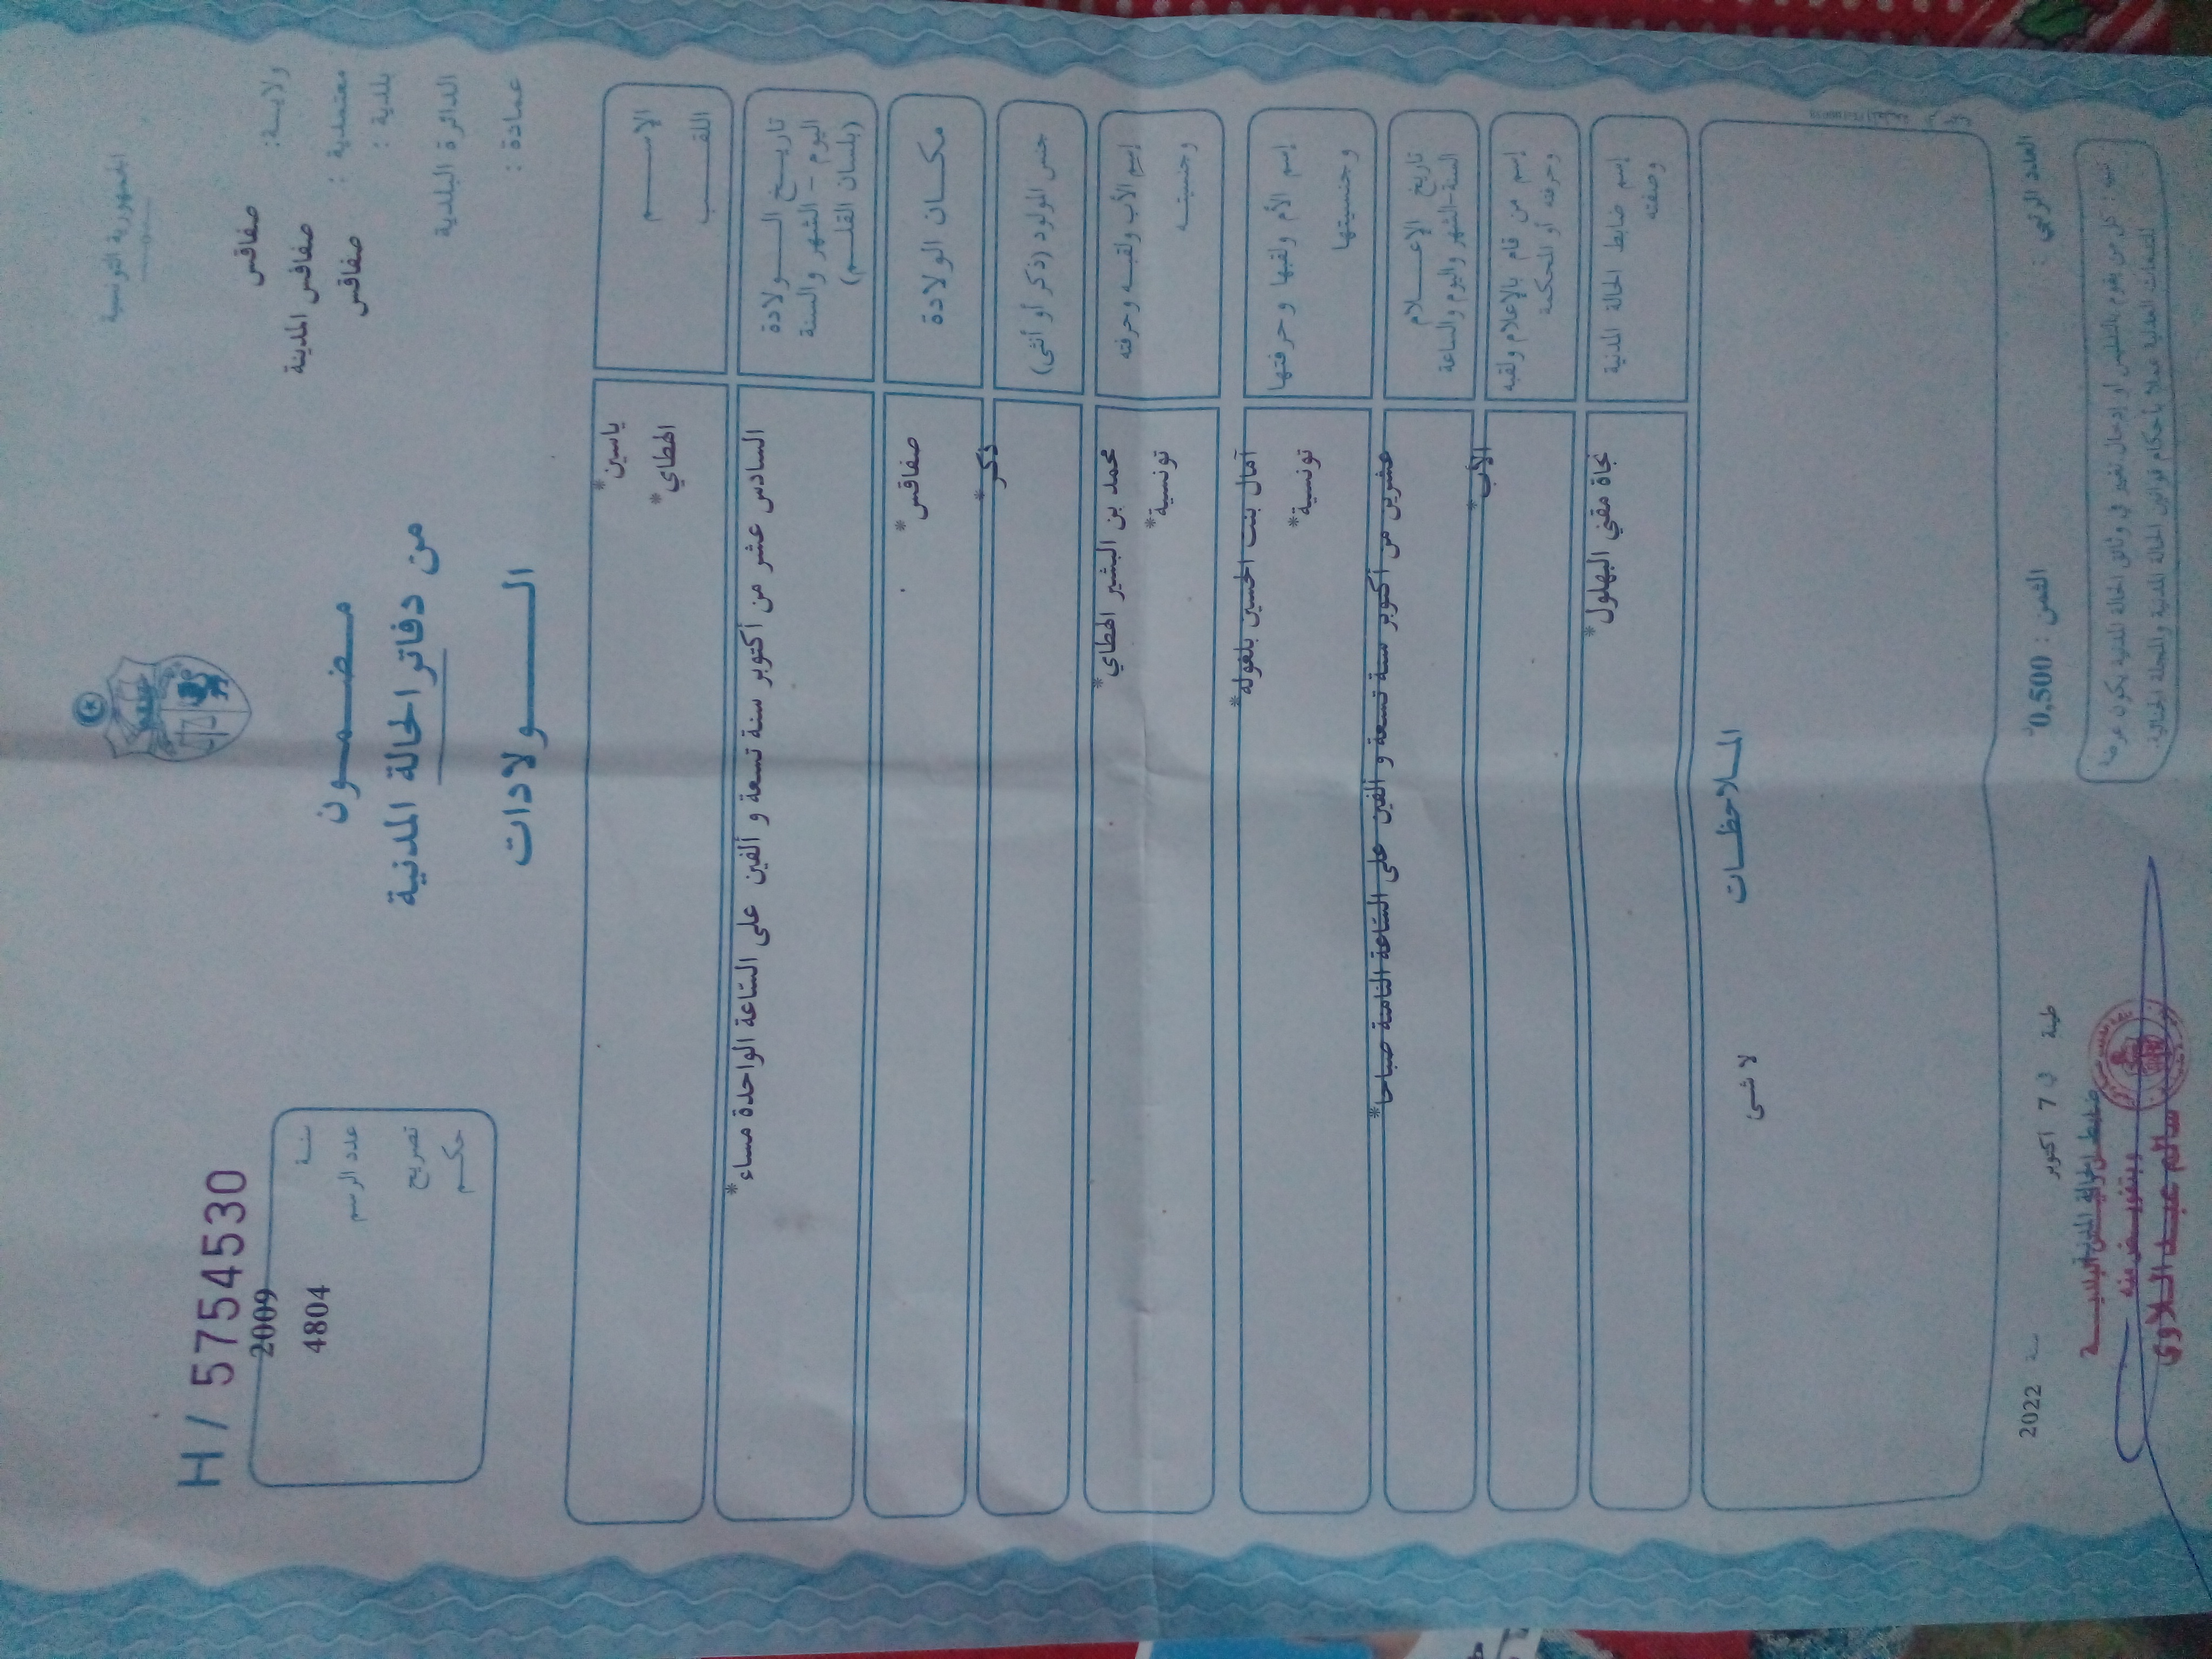 الجمهورية التونسية
ولايـــة : صفاقس
معتمدية : صفاقس المدينة
بلدية : صفاقس
الدائرة البلدية
عمادة :
H / 5754530
سنـة 2009
عدد الرسم 4804
تصريح
حكــم
مـضـمـــون
من دفاتر الحالة المدنية
الـــــولادات
الإســـــم ياسين*
اللقـــب الهطاي*
تاريـــخ الــــولادة السادس عشر من أكتوبر سنة تسعة و ألفين على الساعة الواحدة مساء*
اليوم - الشهر والسنة
(بلسان القلـــم)
مكــان الولادة صفاقس*
جنس المولود (ذكر أو أنثى) ذكر*
إسم الأب ولقبـه وحرفته محمد بن البشير الهطاي*
وجنسيتــه تونسية*
إسم الأم ولقبها وحرفتها آمال بنت الحسين بلغوله*
وجنسيتها تونسية*
تاريخ الإعـــلام عشرين من أكتوبر سنة تسعة و ألفين على الساعة الثامنة صباحا*
السنة-الشهر واليوم والساعة
إسم من قام بالإعلام ولقبه الأب*
وحرفته أو المحكمة
إسم ضابط الحالة المدنية نجاة مقني البهلول*
وصفته
المـلاحظــات
لا شئ
العدد الرتبي :
الثمن : 0,500د
طينة في 7 أكتوبر سنة 2022
تنبيه : كل من يقوم بالتدليس أو إدخال تغيير في وثائق الحالة المدنية يكون عرضة
للتتبعات العدلية عملا بأحكام قوانين الحالة المدنية والمجلة الجنائية.
ضابط الحالة المدنية
وبتفويض منه
سالم عبد الـلاوي